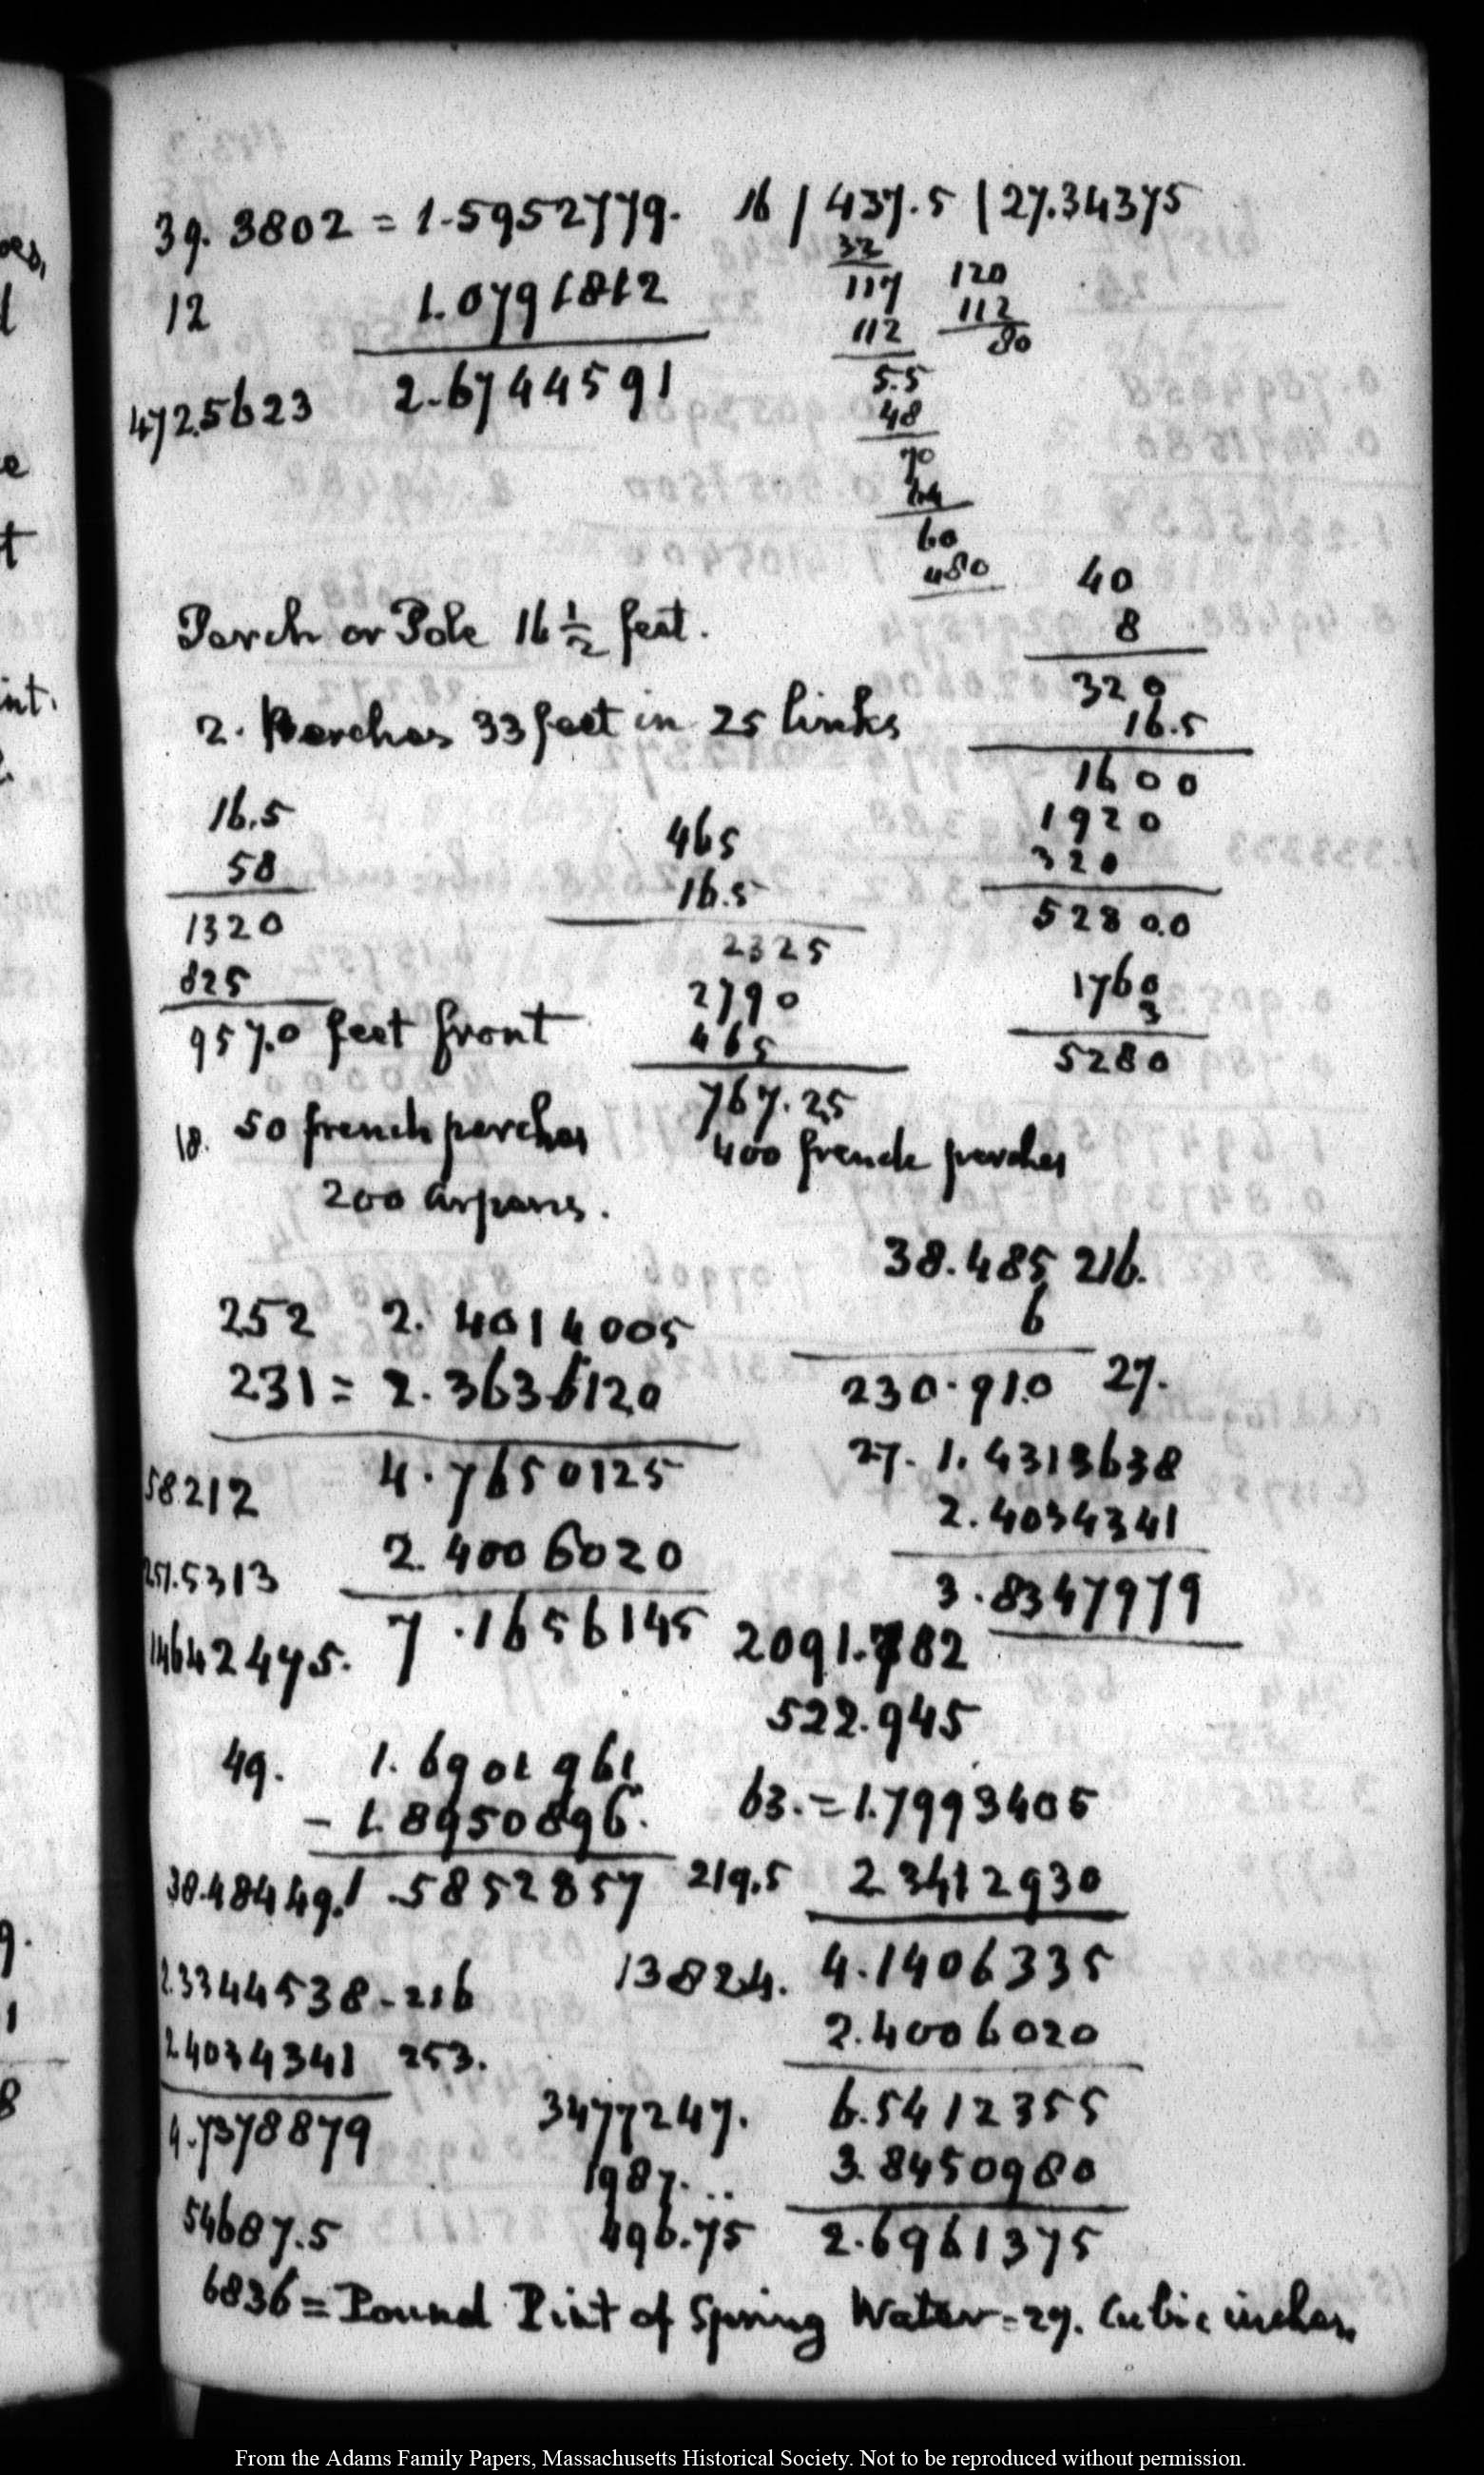 39.3802 = 1.5952779.
12 1.0791812
472.5623 2.6744591
16 / 437.5 | 27.34375
32
117 120
112 112
5.5 80
48
70
64
60
480
Perch or Pole 16 1/2 feet.
2. Perches 33 feet in 25 links
40
8
320
16.5
1600
1920
320
5280.0
1760
3
5280
16.5
58
1320
825
957.0 feet front
465
16.5
2325
2790
465
767.25
18. 50 french perches
400 french perches
200 arpens.
38.485 216.
6
230.910 27.
252 2.4014005
231 = 2.3636120
58212 4.7650125
251.5313 2.4006020
14642475. 7.1656145
27. 1.4313638
2.4034341
3.8347979
2091.782
522.945
49. 1.6901961
- 1.8950896.
38.48449. 1.5852857
63. = 1.7993405
219.5 2.3412930
13824. 4.1406335
2.4006020
3477247. 6.5412355
1987... 3.8450980
496.75 2.6961375
2.3344538 - 216
2.4034341 253.
4.7378879
54687.5
6836 = Pound Pint of Spring Water = 27. Cubic inches.
From the Adams Family Papers, Massachusetts Historical Society. Not to be reproduced without permission.